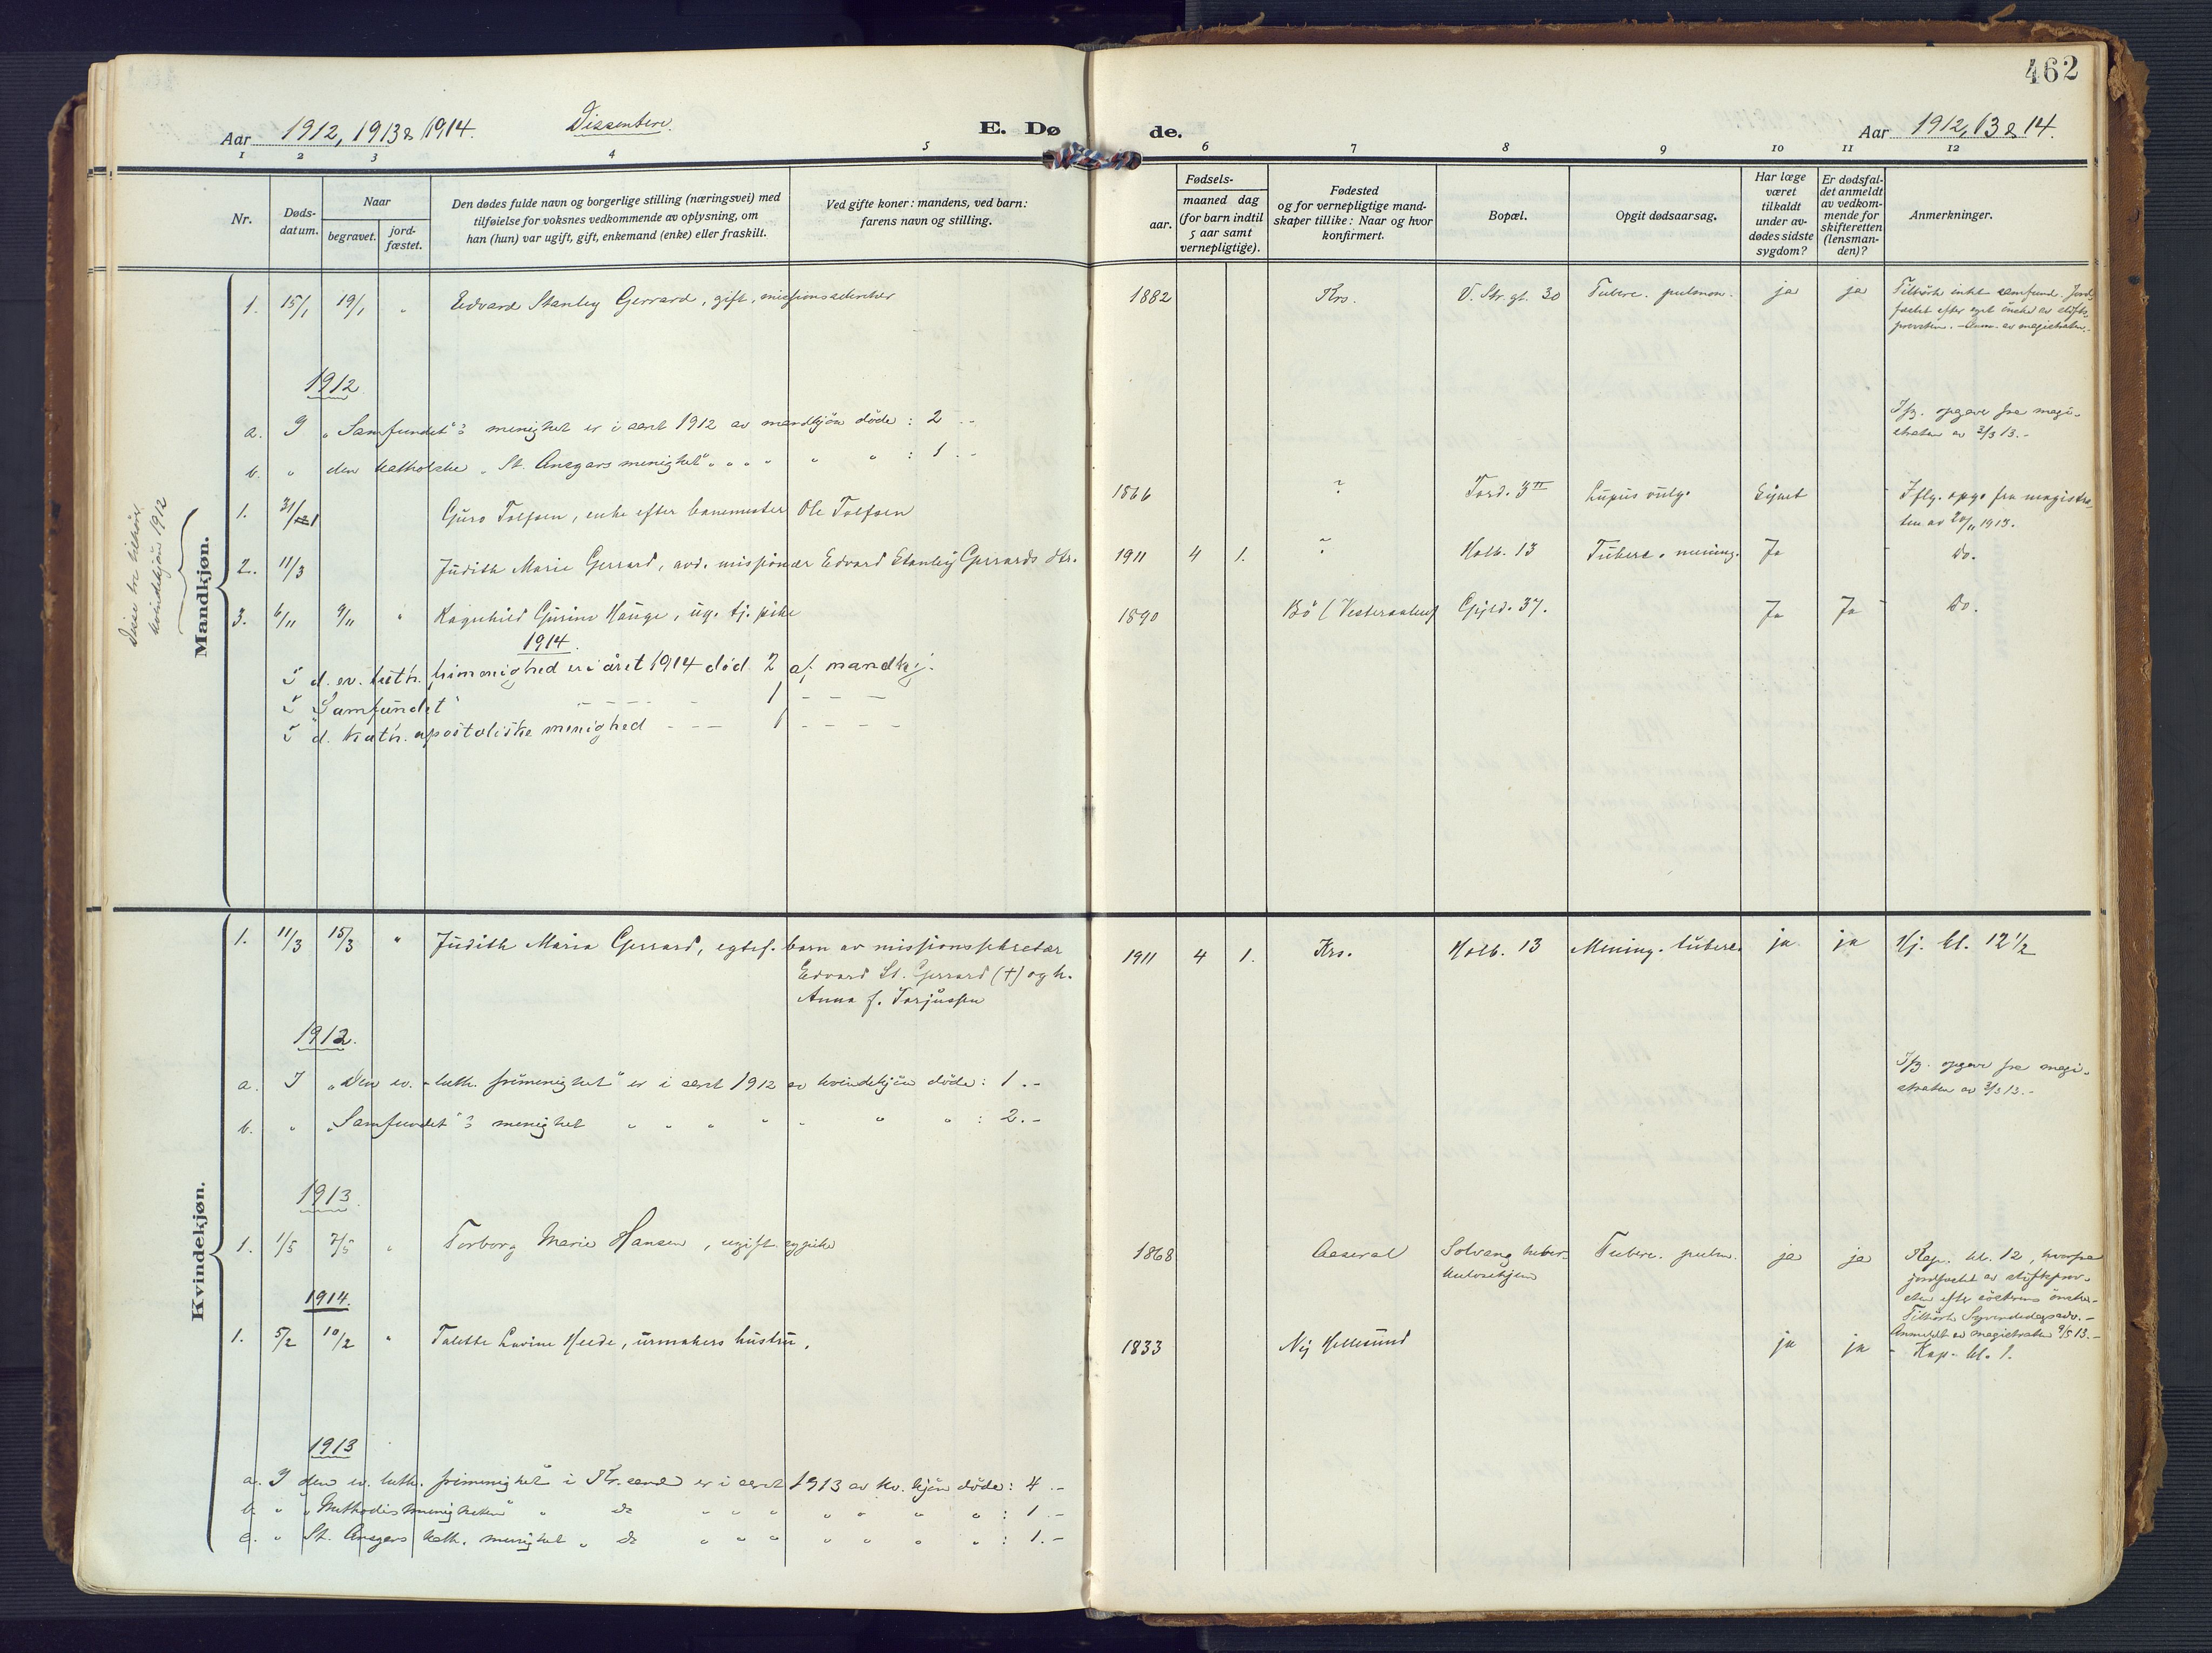 462
Aar 1912, 1913 & 1914. Dissentere. E. Dø de. Aar 1912, 13 & 14.
1 2 3 4 5 6 7 8 9 10 11 12
Nr.
Døds-
datum.
Naar
begravet.
jord-
fæstet.
Den dødes fulde navn og borgerlige stilling (næringsvei) med
tilføielse for voksnes vedkommende av oplysning, om
han (hun) var ugift, gift, enkemand (enke) eller fraskilt.
Ved gifte koner: mandens, ved barn:
farens navn og stilling.
Fødsels-
aar.
maaned dag
(for barn indtil
5 aar samt
vernepligtige).
Fødested
og for vernepligtige mand-
skaper tillike: Naar og hvor
konfirmert.
Bopæl.
Opgit dødsaarsag.
Har læge
været
tilkaldt
under av-
dødes sidste
sygdom?
Er dødsfal-
det anmeldt
av vedkom-
mende for
skifteretten
(lensman-
den)?
Anmerkninger.
Mandkjøn.
1. 15/1 19/1 " Edvard Stanley Gerrard, gift, missionssekretær 1882 Krs. V. Str. gt. 30 Tuberc. pulmon. ja ja Tilhørte intet samfund. Jord-
fæstet efter eget ønske av stifts-
provsten. - Anm. av magistraten.-
1912
a. I "Samfundet"s menighet er i aaret 1912 av mandkjøn døde: 2.- Ifg. opgave fra magi-
straten av 3/3 13.-
b. " den katholske "St. Ansgars menighet" " " " " " " : 1.-
Disse tre tilhører
kvindekjøn 1912
1. 31/1 Guro Tolfsen, enke efter banemester Ole Tolfsen 1866 ? Tord. 3 II Lupus vulg. - Iflg. opg. fra magistra-
ten av 20/11 1913.
2. 11/3 Judith Marie Gerrard, avd. missionær Edvard Stanley Gerrards dtr. 1911 4 1. ? Holb. 13 Tuberc. mening. Ja - do.
3. 6/11 9/11 " Ragnhild Gurine Hauge, ug. tj. pike 1890 Bö (Vesteraalen) Gyld. 37. Ja Ja - Do.
1914.
I d. ev. luth. frimenighed er i året 1914 död 2 af mandkj.
I Samfundet - - - - 1 - - -
I d. kath. apostoliske menighed - - - 1 - - - -
Kvindekjøn.
1. 11/3 15/3 " Judith Maria Gerrard, egtef. barn av missionssekretær 1911 4 1. Krs. Holb. 13 Mening. tuberc. ja ja Kj. kl. 12 1/2
Edvard St. Gerrard (†) og h.
Anna f. Torjussen
1912.
a. I "Den ev.-luth. frimenighet" er i aaret 1912 av kvindekjøn døde: 1.- Ifg. opgave fra magi-
straten av 3/3 13.-
b. " "Samfundet"s menighet " " " " " " " : 2.-
1913
1. 1/5 7/5 " Torborg Marie Hansen, ugift 1868 Aaseral Solvang tuber-
kulosehjem Tuberc. pulm. ja ja Kap. kl. 12, hvorpaa
jordfæstet av stiftsprov-
sten efter søsterens ønske.-
Tilhørte Syvendedagsadv.-
Anmeldt av magistraten 9/5 13.-
1914.
1. 5/2 10/2 " Talette Lovine Heede, urmakers hustru. 1833 Ny Hellesund ja ja - Kap. kl. 1.
1913
a. I den ev. luth. frimenighet i Kr.sand er i aaret 1913 av kv. kjøn døde: 4.-
b. " "Methodistmenigheten" " do " " " " " " " : 1.-
c. " St. Ansgars kath. menighet " do " " " " " " " : 1.-